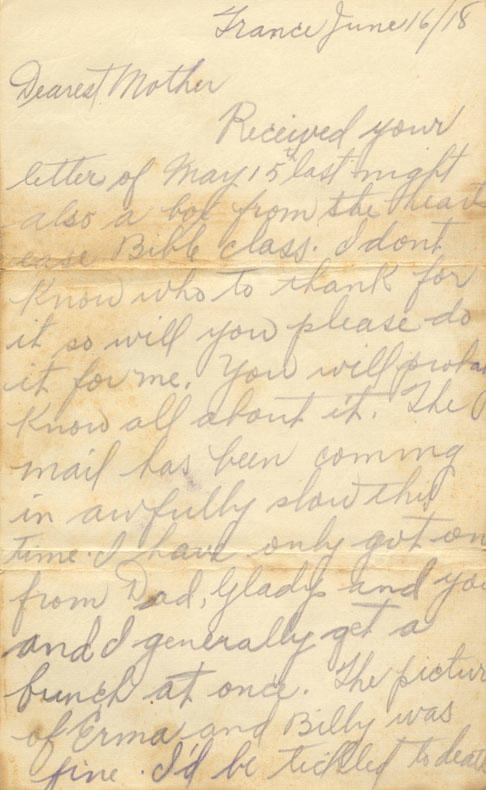 France June 16/18
Dearest Mother
Received your
letter of May 15th last night
also a box from the heart
ease Bible class. I dont
know who to thank for
it so will you please do
it for me. You will proba
know all about it. The
mail has been coming
in awfully slow this
time. I have only got on
from Dad, Gladys and you
and I generally get a
bunch at once. The pictur
of Erma and Billy was
fine. I'd be tickled to death